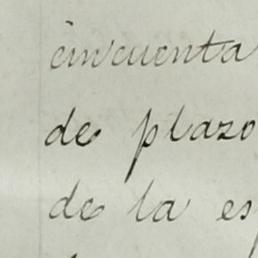 cincuenta
de plazo
de la es